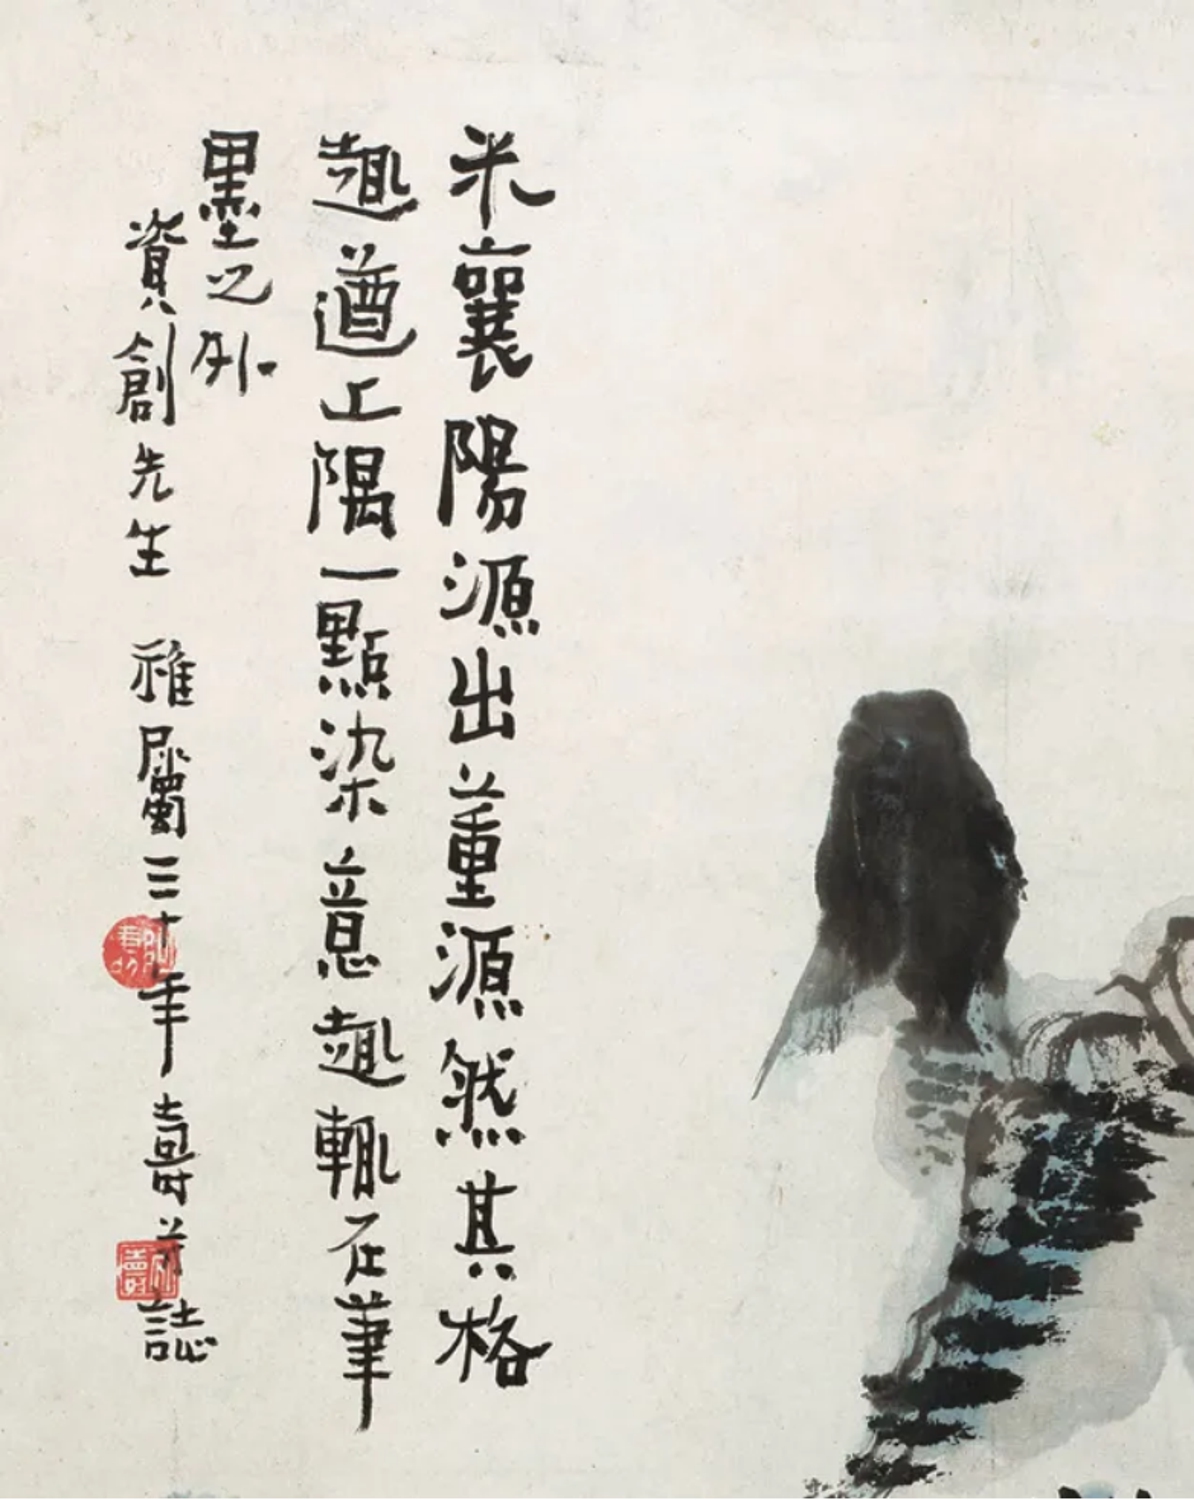 米襄陽源出董源然其格
趣遒上隅一點染意趣輒在筆
墨之外
資創先生 雅屬三十年壽誌